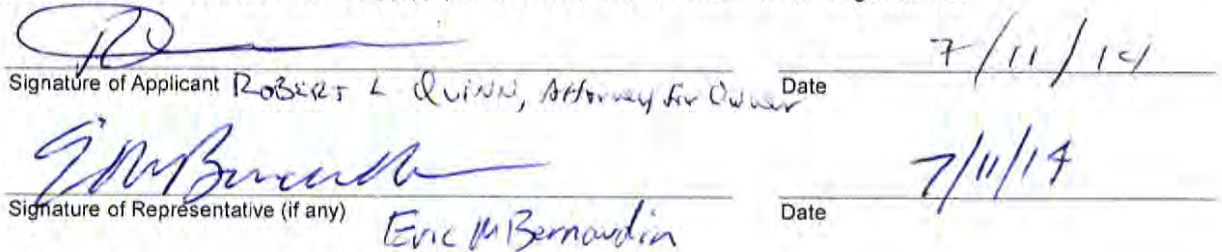 7/11/14
Signature of Applicant ROBERT L QUINN, Attorney for Owner Date
7/11/14
Signature of Representative (if any) Date
Eric M Bernardin